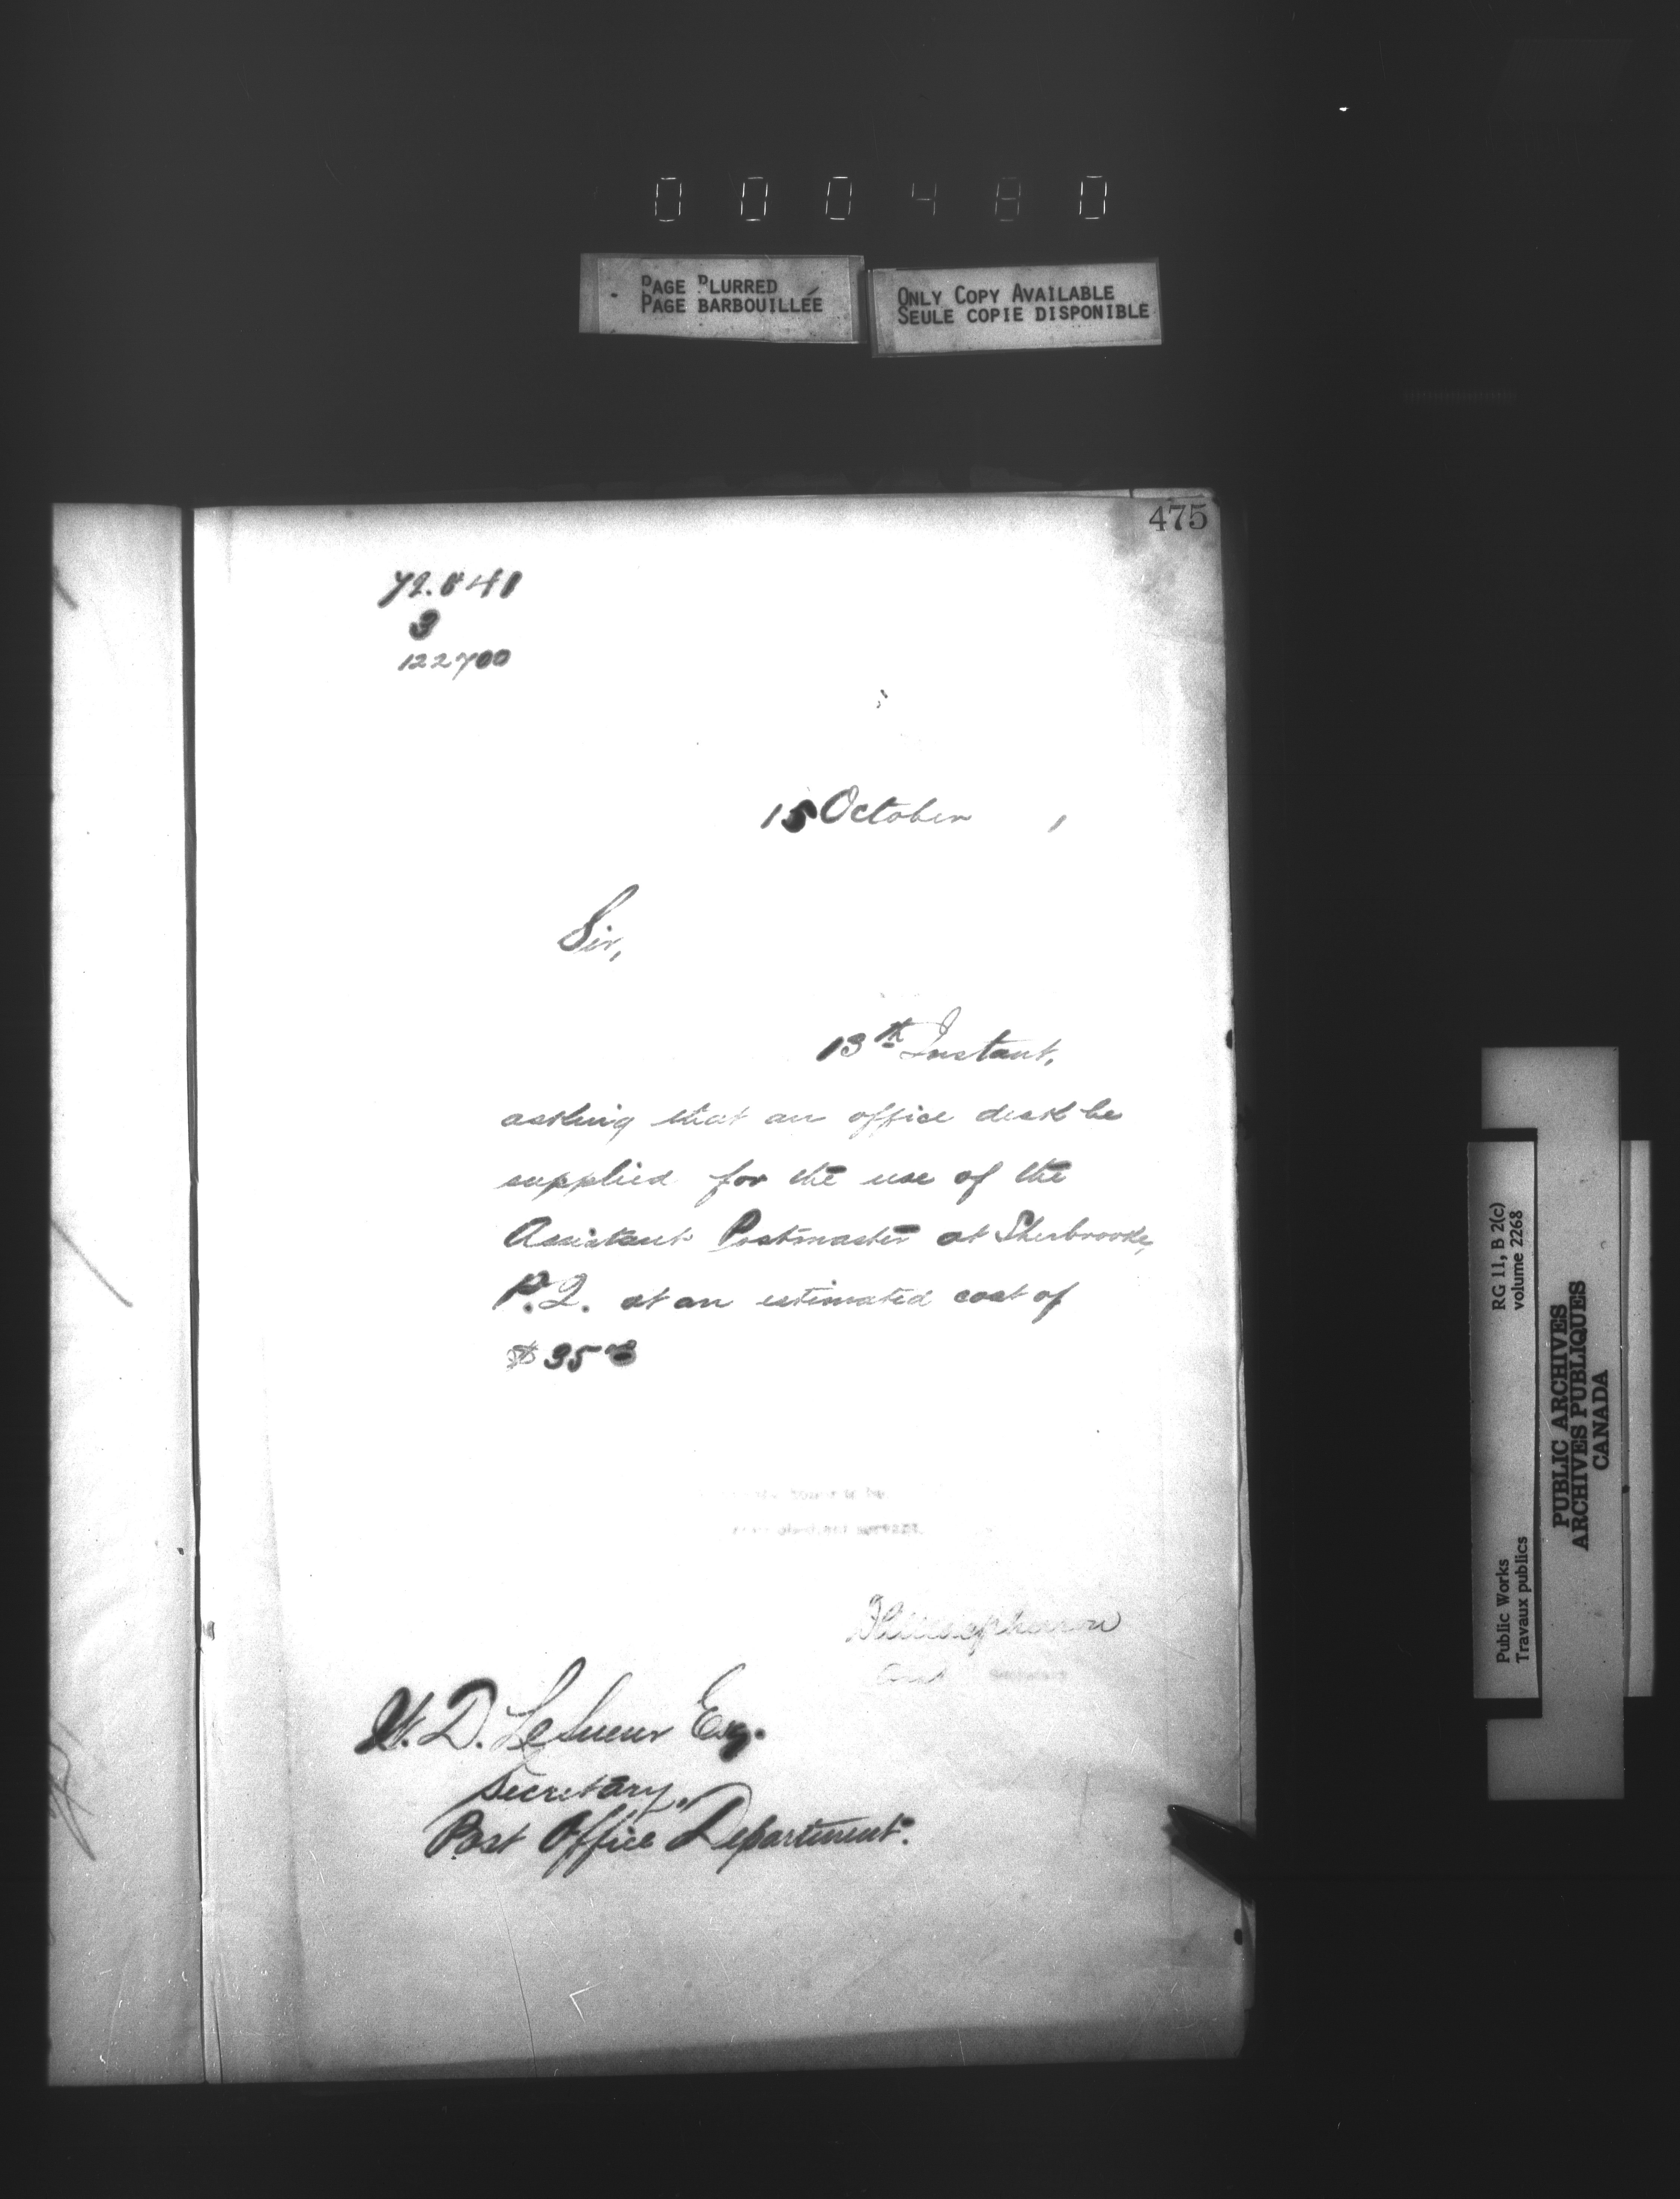 000480
PAGE BLURRED
PAGE BARBOUILLÉE
ONLY COPY AVAILABLE
SEULE COPIE DISPONIBLE
475
3
122700
15 October ,
Sir,
13th Instant,
asking that an office desk be
supplied for the use of the
Assistant Postmaster at Sherbrooke,
P.Q. at an estimated cost of
$35
W. D. LeSueur Esq.
Secretary,
Post Office Department.
RG 11, B 2(c)
volume 2268
Public Works
Travaux publics
PUBLIC ARCHIVES
ARCHIVES PUBLIQUES
CANADA